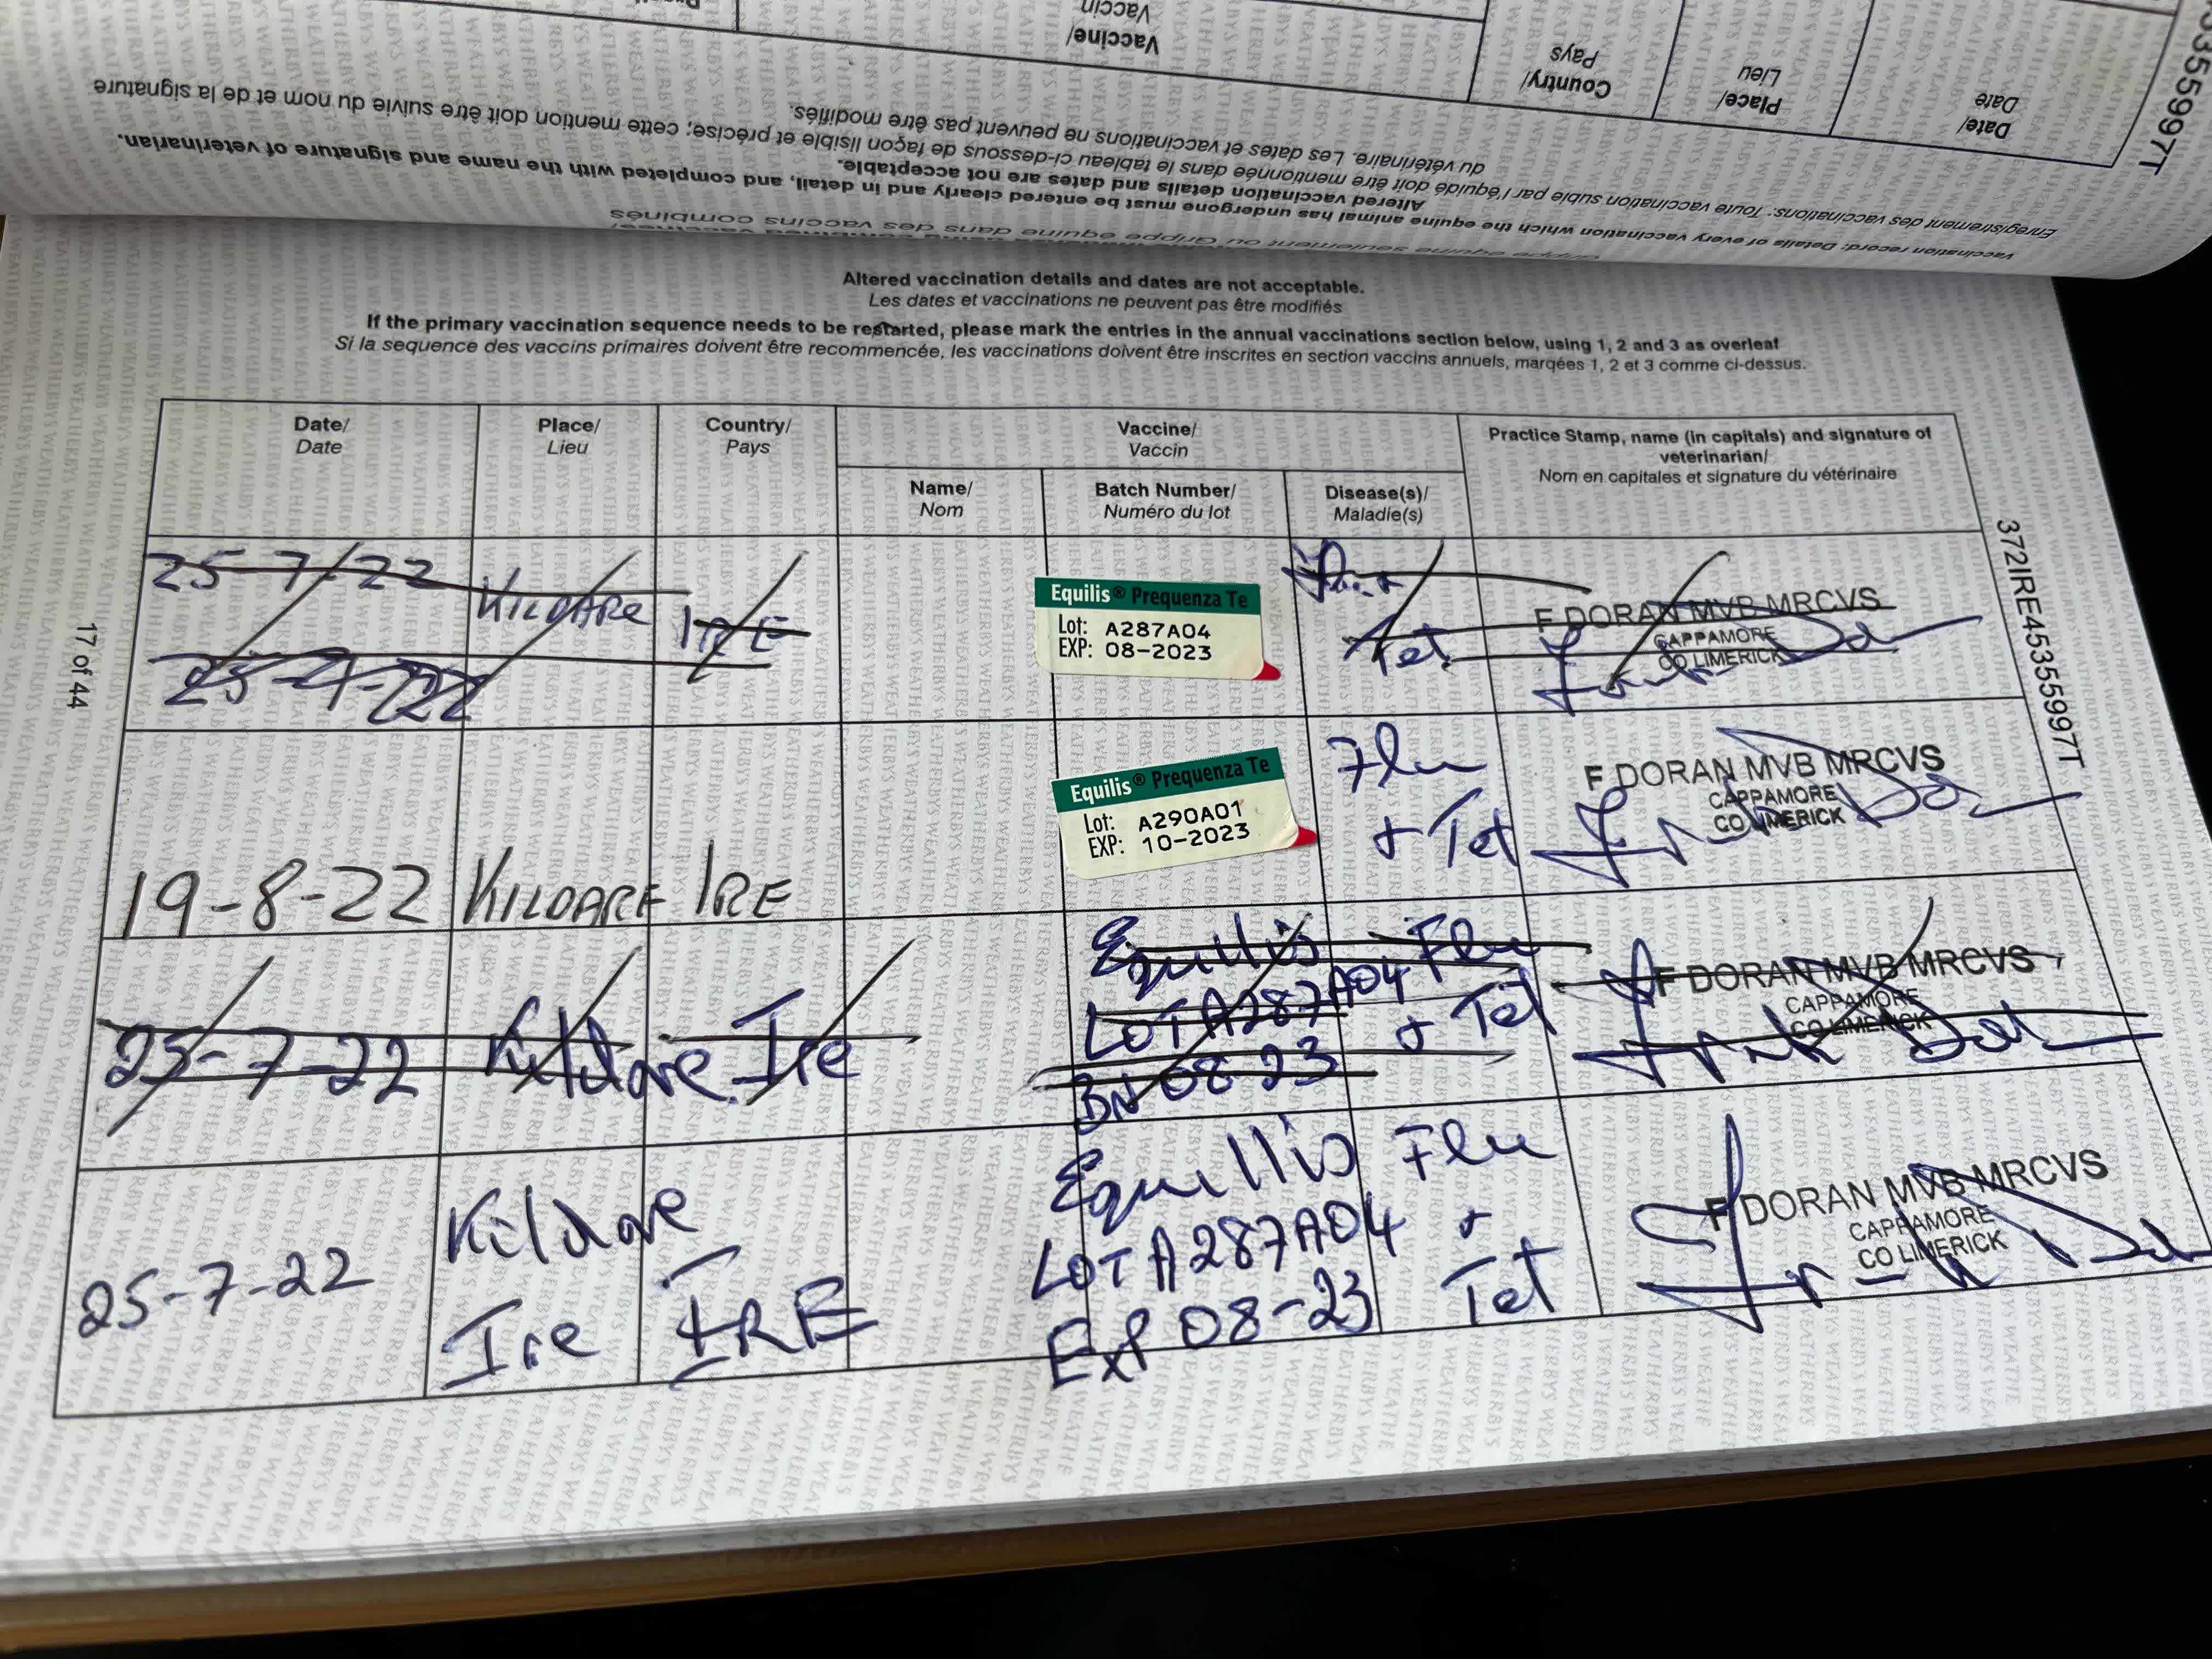 Vaccine/
Vaccin
Country/
Pays
Place/
Lieu
Date/
Date
Vaccination record: Details of every vaccination which the equine animal has undergone must be entered clearly and in detail, and completed with the name and signature of veterinarian.
Altered vaccination details and dates are not acceptable.
Enregistrement des vaccinations: Toute vaccination subie par l'équidé doit être mentionnée dans le tableau ci-dessous de façon lisible et précise; cette mention doit être suivie du nom et de la signature
du vétérinaire. Les dates et vaccinations ne peuvent pas être modifiés.
Grippe equine seulement ou Grippe equine dans des vaccins combinés
Altered vaccination details and dates are not acceptable.
Les dates et vaccinations ne peuvent pas être modifiés
If the primary vaccination sequence needs to be restarted, please mark the entries in the annual vaccinations section below, using 1, 2 and 3 as overleaf
Si la sequence des vaccins primaires doivent être recommencée, les vaccinations doivent être inscrites en section vaccins annuels, marqées 1, 2 et 3 comme ci-dessus.
Date/
Date
Place/
Lieu
Country/
Pays
Vaccine/
Vaccin
Name/
Nom
Batch Number/
Numéro du lot
Disease(s)/
Maladie(s)
Practice Stamp, name (in capitals) and signature of
veterinarian/
Nom en capitales et signature du vétérinaire
25-7/22
KILDARE
IRE
Equilis® Prequenza Te
Lot: A287A04
EXP: 08-2023
Tet
F DORAN MVB MRCVS
CAPPAMORE
CO LIMERICK
19-8-22
KILDARE
IRE
Equilis® Prequenza Te
Lot: A290A01
EXP: 10-2023
Flu
+ Tet
F DORAN MVB MRCVS
CAPPAMORE
CO LIMERICK
25-7-22
Kildare
Ire
Equillis
LOT A287A04
BN 08-23
Flu
+ Tet
F DORAN MVB MRCVS
CAPPAMORE
CO LIMERICK
25-7-22
Kildare
Ire
IRE
Equillis
LOT A287A04
Exp 08-23
Flu
+
Tet
F DORAN MVB MRCVS
CAPPAMORE
CO LIMERICK
17 of 44
372IRE45355997T